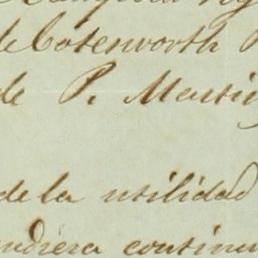 de Cotesworth P
de P. Mauri
de la utilidad
endiera continu